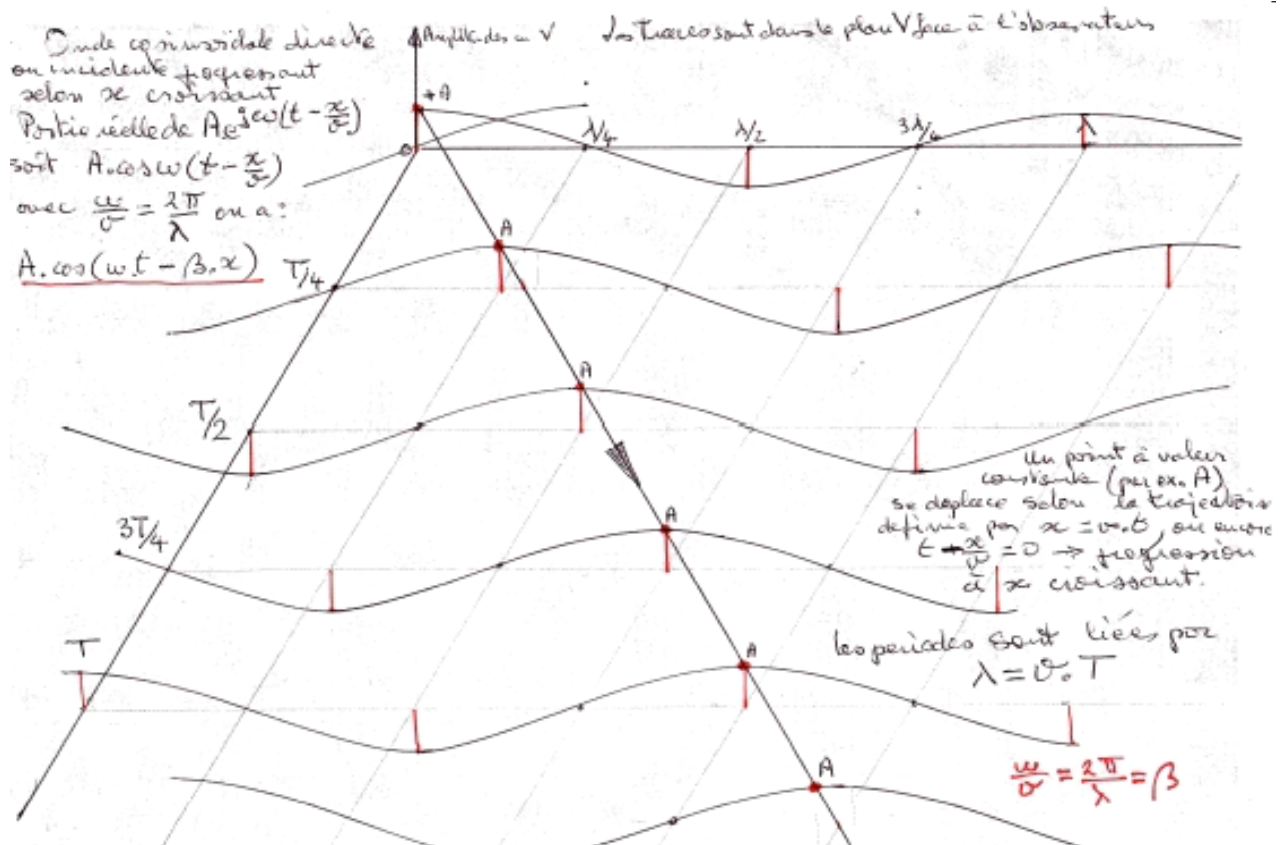 Onde cosinusoïdale directe
ou incidente progressant
selon x croissant
Partie réelle de Ae^jω(t - x/v)
soit A.cosω(t - x/v)
avec ω/v = 2π/λ on a :
A.cos(ωt - β.x)
Amplitudes en V
Les traces sont dans le plan V face à l'observateur
+A
0
λ/4
λ/2
3λ/4
λ
A
T/4
A
T/2
un point à valeur
constante (par ex. A)
se deplace selon la trajectoire
définie par x = v.t, ou encore
t - x/v = 0 → progression
à x croissant.
A
3T/4
les periodes sont liées par
λ = v.T
T
A
A
ω/v = 2π/λ = β